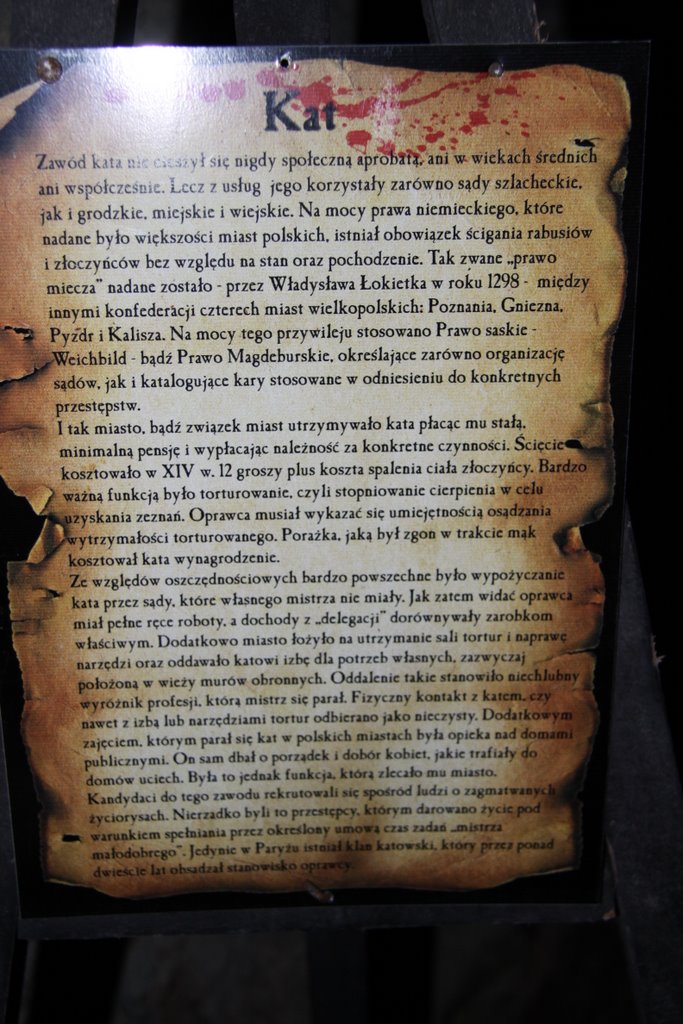 Kat
Zawód kata nie cieszył się nigdy społeczną aprobatą, ani w wiekach średnich
ani współcześnie. Lecz z usług jego korzystały zarówno sądy szlacheckie,
jak i grodzkie, miejskie i wiejskie. Na mocy prawa niemieckiego, które
nadane było większości miast polskich, istniał obowiązek ścigania rabusiów
i złoczyńców bez względu na stan oraz pochodzenie. Tak zwane „prawo
miecza" nadane zostało - przez Władysława Łokietka w roku 1298 - między
innymi konfederacji czterech miast wielkopolskich: Poznania, Gniezna,
Pyzdr i Kalisza. Na mocy tego przywileju stosowano Prawo saskie -
Weichbild - bądź Prawo Magdeburskie, określające zarówno organizację
sądów, jak i katalogujące kary stosowane w odniesieniu do konkretnych
przestępstw.
I tak miasto, bądź związek miast utrzymywało kata płacąc mu stałą,
minimalną pensję i wypłacając należność za konkretne czynności. Ścięcie
kosztowało w XIV w. 12 groszy plus koszta spalenia ciała złoczyńcy. Bardzo
ważną funkcją było torturowanie, czyli stopniowanie cierpienia w celu
uzyskania zeznań. Oprawca musiał wykazać się umiejętnością osądzania
wytrzymałości torturowanego. Porażka, jaką był zgon w trakcie mąk
kosztował kata wynagrodzenie.
Ze względów oszczędnościowych bardzo powszechne było wypożyczanie
kata przez sądy, które własnego mistrza nie miały. Jak zatem widać oprawca
miał pełne ręce roboty, a dochody z „delegacji" dorównywały zarobkom
właściwym. Dodatkowo miasto łożyło na utrzymanie sali tortur i naprawę
narzędzi oraz oddawało katowi izbę dla potrzeb własnych, zazwyczaj
położoną w wieży murów obronnych. Oddalenie takie stanowiło niechlubny
wyróżnik profesji, którą mistrz się parał. Fizyczny kontakt z katem, czy
nawet z izbą lub narzędziami tortur odbierano jako nieczysty. Dodatkowym
zajęciem, którym parał się kat w polskich miastach była opieka nad domami
publicznymi. On sam dbał o porządek i dobór kobiet, jakie trafiały do
domów uciech. Była to jednak funkcja, którą zlecało mu miasto.
Kandydaci do tego zawodu rekrutowali się spośród ludzi o zagmatwanych
życiorysach. Nierzadko byli to przestępcy, którym darowano życie pod
warunkiem spełniania przez określony umową czas zadań „mistrza
małodobrego". Jedynie w Paryżu istniał klan katowski, który przez ponad
dwieście lat obsadzał stanowisko oprawcy.